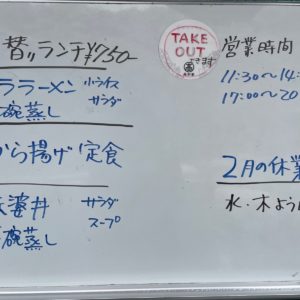 替りランチ¥750-
ララーメン 小ライス
サラダ
碗蒸し
から揚げ定食
婆丼 サラダ
スープ
碗蒸し
TAKE
OUT
できます
営業時間
11:30〜14:
17:00〜20
2月の休業
水・木よう